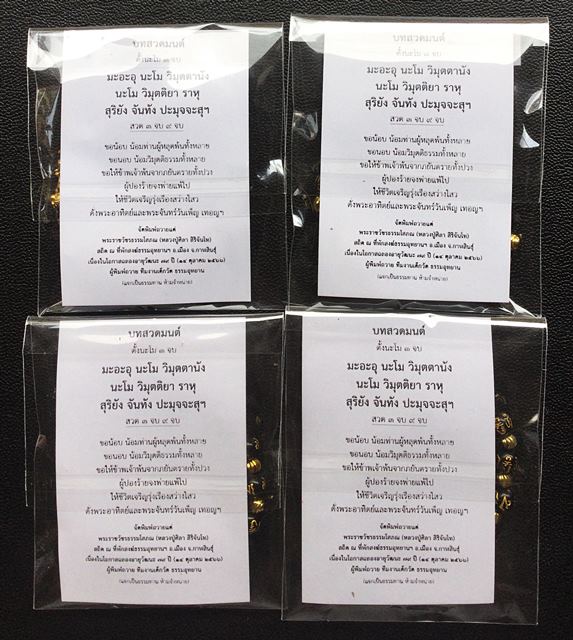 บทสวดมนต์
ตั้งนะโม ๓ จบ
มะอะอุ นะโม วิมุตตานัง
นะโม วิมุตติยา ราหุ
สุริยัง จันทัง ปะมุจจะสุฯ
สวด ๓ จบ ๙ จบ
ขอน้อบ น้อมท่านผู้หลุดพ้นทั้งหลาย
ขอนอบ น้อมวิมุตติธรรมทั้งหลาย
ขอให้ข้าพเจ้าพ้นจากภยันตรายทั้งปวง
ผู้ปองร้ายจงพ่ายแพ้ไป
ให้ชีวิตเจริญรุ่งเรืองสว่างไสว
ดังพระอาทิตย์และพระจันทร์วันเพ็ญ เทอญฯ
จัดพิมพ์ถวายแด่
พระราชวัชรธรรมโสภณ (หลวงปู่ศิลา สิริจันโท)
สถิต ณ ที่พักสงฆ์ธรรมอุทยานฯ อ.เมือง จ.กาฬสินธุ์
เนื่องในโอกาสฉลองอายุวัฒนะ ๗๙ ปี (๑๔ ตุลาคม ๒๕๖๖)
ผู้พิมพ์ถวาย ทีมงานเด็กวัด ธรรมอุทยาน
(แจกเป็นธรรมทาน ห้ามจำหน่าย)
บทสวดมนต์
ตั้งนะโม ๓ จบ
มะอะอุ นะโม วิมุตตานัง
นะโม วิมุตติยา ราหุ
สุริยัง จันทัง ปะมุจจะสุฯ
สวด ๓ จบ ๙ จบ
ขอน้อบ น้อมท่านผู้หลุดพ้นทั้งหลาย
ขอนอบ น้อมวิมุตติธรรมทั้งหลาย
ขอให้ข้าพเจ้าพ้นจากภยันตรายทั้งปวง
ผู้ปองร้ายจงพ่ายแพ้ไป
ให้ชีวิตเจริญรุ่งเรืองสว่างไสว
ดังพระอาทิตย์และพระจันทร์วันเพ็ญ เทอญฯ
จัดพิมพ์ถวายแด่
พระราชวัชรธรรมโสภณ (หลวงปู่ศิลา สิริจันโท)
สถิต ณ ที่พักสงฆ์ธรรมอุทยานฯ อ.เมือง จ.กาฬสินธุ์
เนื่องในโอกาสฉลองอายุวัฒนะ ๗๙ ปี (๑๔ ตุลาคม ๒๕๖๖)
ผู้พิมพ์ถวาย ทีมงานเด็กวัด ธรรมอุทยาน
(แจกเป็นธรรมทาน ห้ามจำหน่าย)
บทสวดมนต์
ตั้งนะโม ๓ จบ
มะอะอุ นะโม วิมุตตานัง
นะโม วิมุตติยา ราหุ
สุริยัง จันทัง ปะมุจจะสุฯ
สวด ๓ จบ ๙ จบ
ขอน้อบ น้อมท่านผู้หลุดพ้นทั้งหลาย
ขอนอบ น้อมวิมุตติธรรมทั้งหลาย
ขอให้ข้าพเจ้าพ้นจากภยันตรายทั้งปวง
ผู้ปองร้ายจงพ่ายแพ้ไป
ให้ชีวิตเจริญรุ่งเรืองสว่างไสว
ดังพระอาทิตย์และพระจันทร์วันเพ็ญ เทอญฯ
จัดพิมพ์ถวายแด่
พระราชวัชรธรรมโสภณ (หลวงปู่ศิลา สิริจันโท)
สถิต ณ ที่พักสงฆ์ธรรมอุทยานฯ อ.เมือง จ.กาฬสินธุ์
เนื่องในโอกาสฉลองอายุวัฒนะ ๗๙ ปี (๑๔ ตุลาคม ๒๕๖๖)
ผู้พิมพ์ถวาย ทีมงานเด็กวัด ธรรมอุทยาน
(แจกเป็นธรรมทาน ห้ามจำหน่าย)
บทสวดมนต์
ตั้งนะโม ๓ จบ
มะอะอุ นะโม วิมุตตานัง
นะโม วิมุตติยา ราหุ
สุริยัง จันทัง ปะมุจจะสุฯ
สวด ๓ จบ ๙ จบ
ขอน้อบ น้อมท่านผู้หลุดพ้นทั้งหลาย
ขอนอบ น้อมวิมุตติธรรมทั้งหลาย
ขอให้ข้าพเจ้าพ้นจากภยันตรายทั้งปวง
ผู้ปองร้ายจงพ่ายแพ้ไป
ให้ชีวิตเจริญรุ่งเรืองสว่างไสว
ดังพระอาทิตย์และพระจันทร์วันเพ็ญ เทอญฯ
จัดพิมพ์ถวายแด่
พระราชวัชรธรรมโสภณ (หลวงปู่ศิลา สิริจันโท)
สถิต ณ ที่พักสงฆ์ธรรมอุทยานฯ อ.เมือง จ.กาฬสินธุ์
เนื่องในโอกาสฉลองอายุวัฒนะ ๗๙ ปี (๑๔ ตุลาคม ๒๕๖๖)
ผู้พิมพ์ถวาย ทีมงานเด็กวัด ธรรมอุทยาน
(แจกเป็นธรรมทาน ห้ามจำหน่าย)